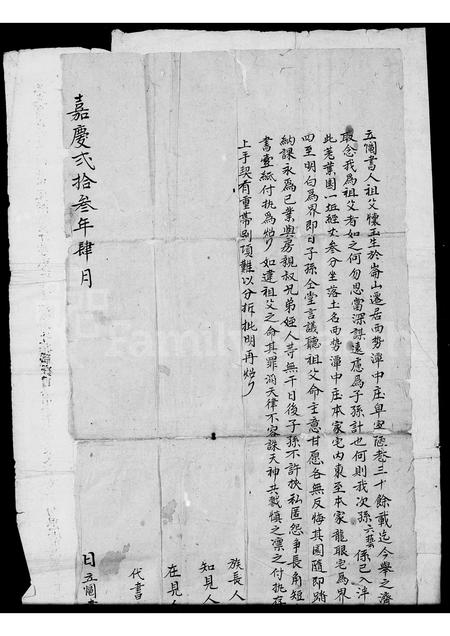 立鬮書人祖父懷玉生於崙山還居西勢潭中庄卑室陋巷三十餘載迄今舉之濟
取念我為祖父者如之何勿思當深謀遠慮為子孫計也何則我次孫六藝係已入泮
此荖葉園一坵經丈叁分坐落土名西勢潭中庄本家宅內東至本家龍眼宅為界
四至明白為界即日子孫仝堂言議聽祖父命主意甘愿各無反悔其園隨即踏
納課永為己業與房親叔兄弟姪人等無干日後子孫不許挾私匿怨爭長角短
書壹紙付執為炤 如違祖父之命其罪滔天律不容誅天神共戮慎之凜之付执存
上手契有重帶別項難以分拆批明再炤
嘉慶弍拾叁年肆月
族長人
知見人
在見人
代書
日立鬮